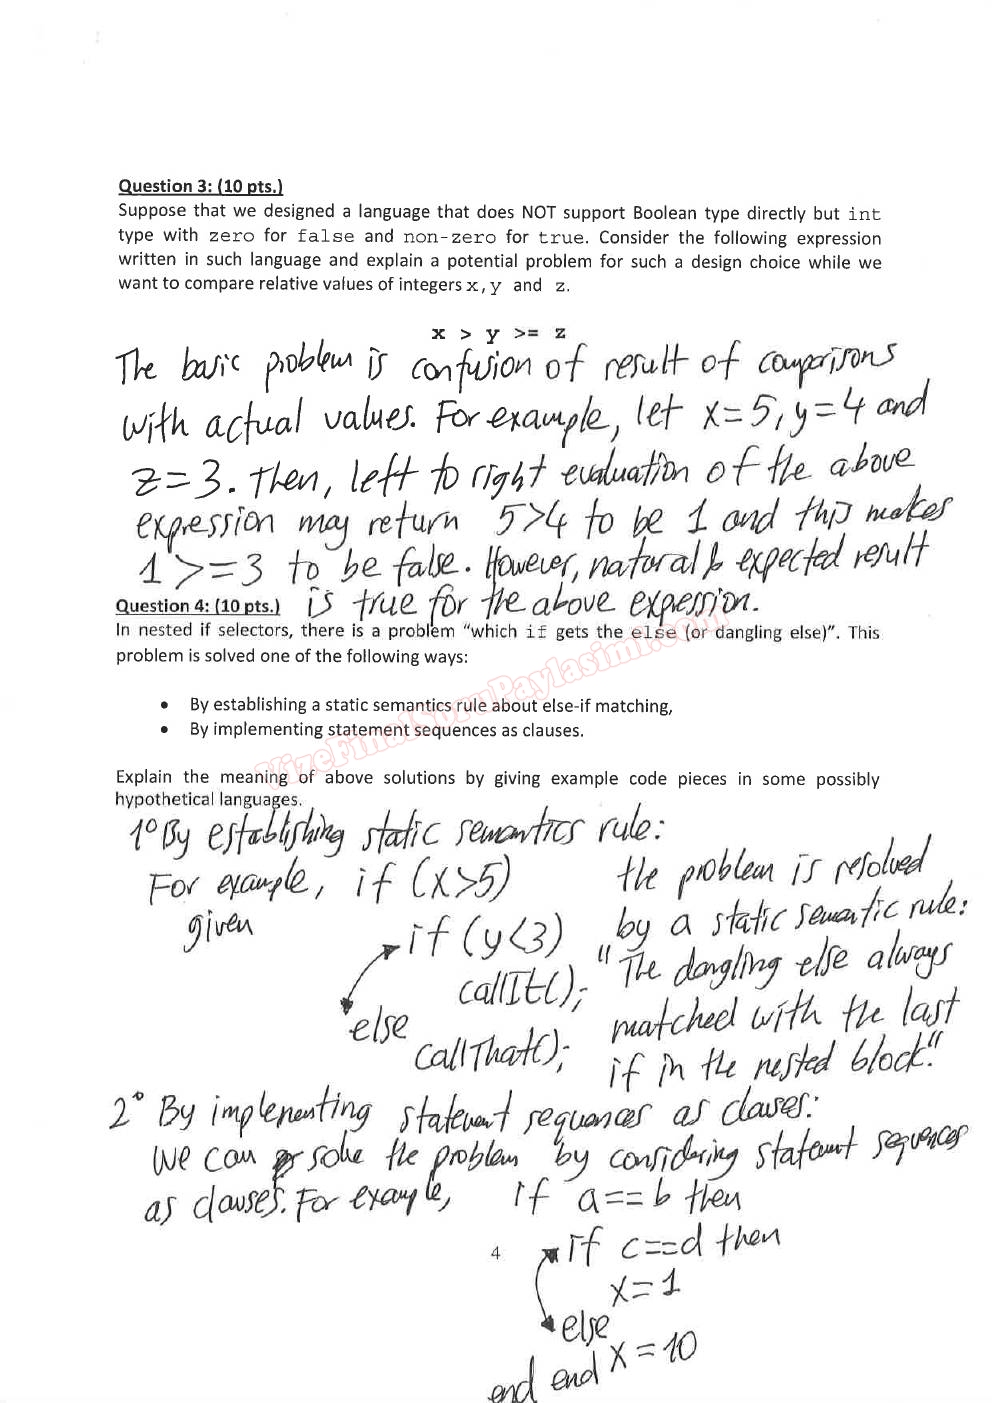 Question 3: (10 pts.)
Suppose that we designed a language that does NOT support Boolean type directly but int
type with zero for false and non-zero for true. Consider the following expression
written in such language and explain a potential problem for such a design choice while we
want to compare relative values of integers x, y and z.
x > y >= z
The basic problem is confusion of result of comparisons
with actual values. For example, let x=5, y=4 and
z=3. Then, left to right evaluation of the above
expression may return 5>4 to be 1 and this makes
1 >=3 to be false. However, natural & expected result
is true for the above expession.
Question 4: (10 pts.)
In nested if selectors, there is a problem "which if gets the else (or dangling else)". This
problem is solved one of the following ways:
• By establishing a static semantics rule about else-if matching,
• By implementing statement sequences as clauses.
VizeFinalSoruPaylasimi.com
Explain the meaning of above solutions by giving example code pieces in some possibly
hypothetical languages.
1° By establishing static semantics rule:
For example, if (x>5)
given
if (y<3)
callIt();
else
callThat();
the problem is resolved
by a static semantic rule:
"The dangling else always
matched with the last
if in the nested block."
2° By implementing statement sequences as clauses:
We can solve the problem by considering statement sequences
as clauses. For example, if a==b then
4
if c==d then
x=1
else
x=10
end end